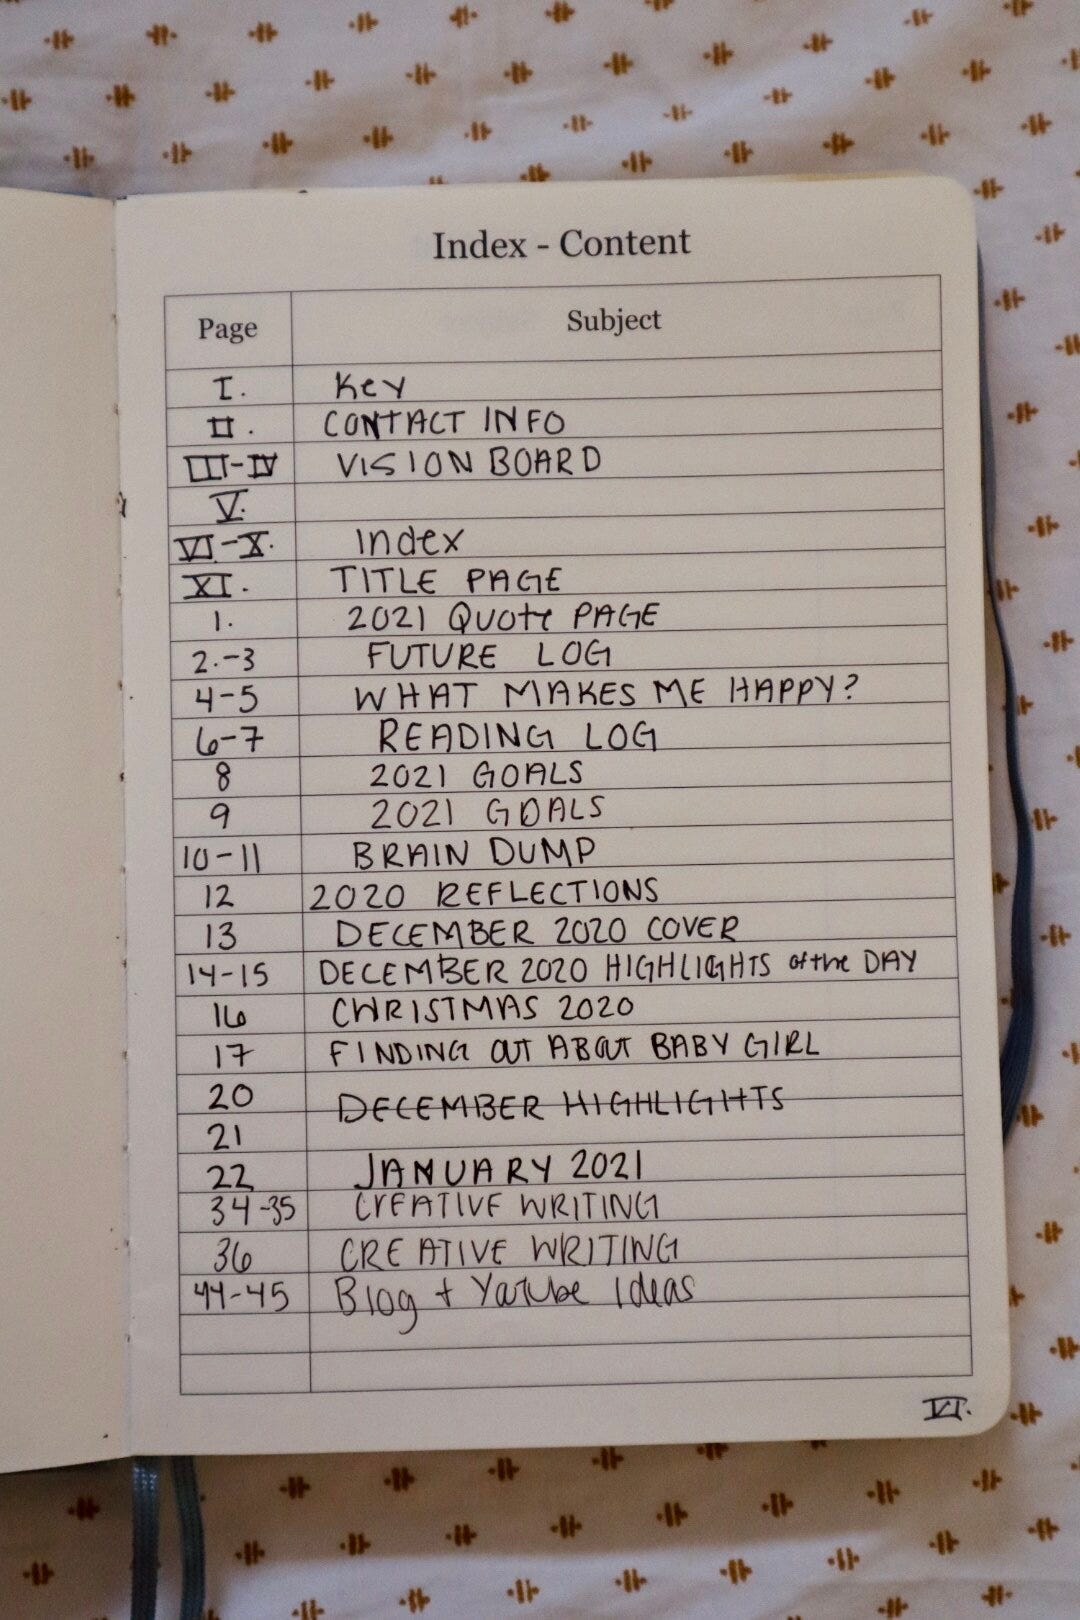 Index - Content
Page Subject
I. Key
II. CONTACT INFO
III-IV VISION BOARD
V.
VI-X. Index
XI. TITLE PAGE
1. 2021 QUOte PAGE
2.-3 FUTURE LOG
4-5 WHAT MAKES ME HAPPY?
6-7 READING LOG
8 2021 GOALS
9 2021 GOALS
10-11 BRAIN DUMP
12 2020 REFLECTIONS
13 DECEMBER 2020 COVER
14-15 DECEMBER 2020 HIGHLIGHTS of the DAY
16 CHRISTMAS 2020
17 FINDING OUT ABOUT BABY GIRL
20 DECEMBER HIGHLIGHTS
21
22 JANUARY 2021
34-35 CREATIVE WRITING
36 CREATIVE WRITING
44-45 Blog + YouTube Ideas
VI.